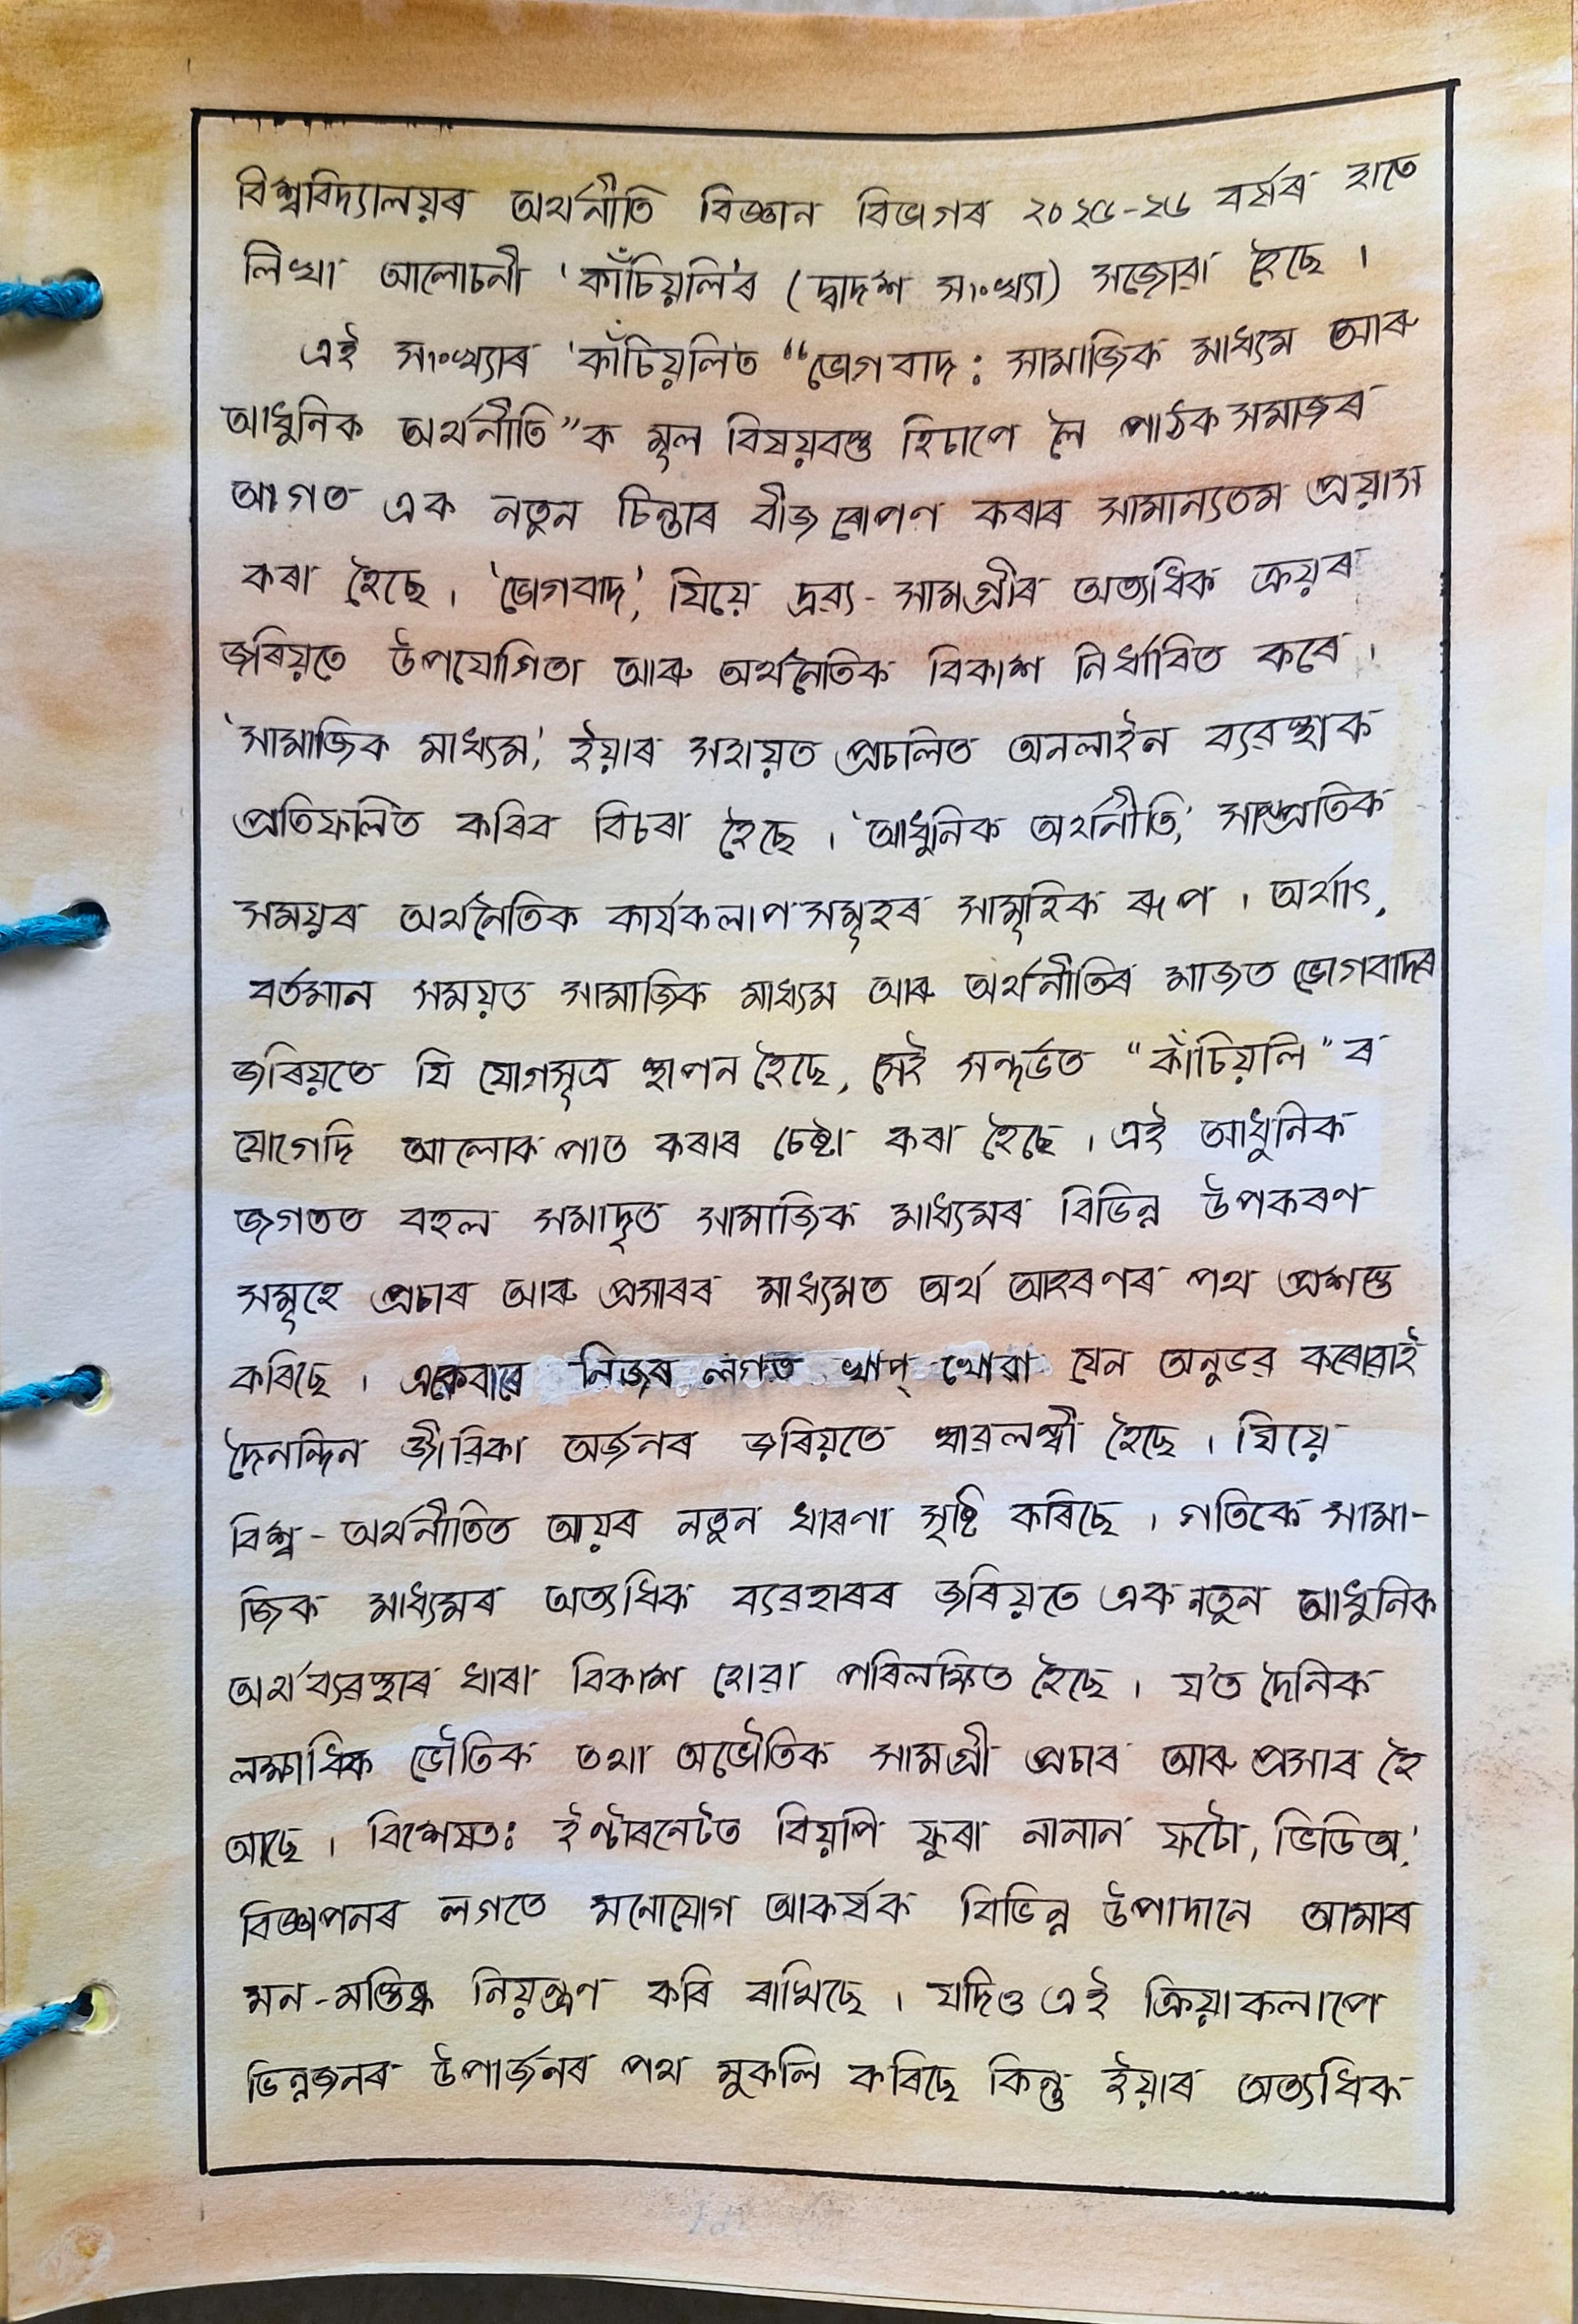 বিশ্ববিদ্যালয়ৰ অৰ্থনীতি বিজ্ঞান বিভাগৰ ২০২৫-২৬ বৰ্ষৰ হাতে
লিখা আলোচনী 'কাঁচিয়লি'ৰ (দ্বাদশ সংখ্যা) সজোৱা হৈছে ।
এই সংখ্যাৰ 'কাঁচিয়লি'ত “ভোগবাদ : সামাজিক মাধ্যম আৰু
আধুনিক অৰ্থনীতি”ক মূল বিষয়বস্তু হিচাপে লৈ পাঠক সমাজৰ
আগত এক নতুন চিন্তাৰ বীজ ৰোপণ কৰাৰ সামান্যতম প্ৰয়াস
কৰা হৈছে । 'ভোগবাদ', যিয়ে দ্ৰব্য - সামগ্ৰীৰ অত্যধিক ক্ৰয়ৰ
জৰিয়তে উপযোগিতা আৰু অৰ্থনৈতিক বিকাশ নিৰ্ধাৰিত কৰে ।
'সামাজিক মাধ্যম', ইয়াৰ সহায়ত প্ৰচলিত অনলাইন ব্যৱস্থাক
প্ৰতিফলিত কৰিব বিচৰা হৈছে । 'আধুনিক অৰ্থনীতি', সাম্প্ৰতিক
সময়ৰ অৰ্থনৈতিক কাৰ্যকলাপ সমূহৰ সামূহিক ৰূপ । অৰ্থাৎ,
বৰ্তমান সময়ত সামাজিক মাধ্যম আৰু অৰ্থনীতিৰ মাজত ভোগবাদৰ
জৰিয়তে যি যোগসূত্ৰ স্থাপন হৈছে, সেই সন্দৰ্ভত “কাঁচিয়লি”ৰ
যোগেদি আলোকপাত কৰাৰ চেষ্টা কৰা হৈছে । এই আধুনিক
জগতত বহুল সমাদৃত সামাজিক মাধ্যমৰ বিভিন্ন উপকৰণ
সমূহে প্ৰচাৰ আৰু প্ৰসাৰৰ মাধ্যমত অৰ্থ আহৰণৰ পথ প্ৰশস্ত
কৰিছে । একেবাৰে নিজৰ লগত খাপ্ খোৱা যেন অনুভৱ কৰোৱাই
দৈনন্দিন জীৱিকা অৰ্জনৰ জৰিয়তে স্বাৱলম্বী হৈছে । যিয়ে
বিশ্ব - অৰ্থনীতিত আয়ৰ নতুন ধাৰণা সৃষ্টি কৰিছে । গতিকে সামা-
জিক মাধ্যমৰ অত্যধিক ব্যৱহাৰৰ জৰিয়তে এক নতুন আধুনিক
অৰ্থব্যৱস্থাৰ ধাৰা বিকাশ হোৱা পৰিলক্ষিত হৈছে । য'ত দৈনিক
লক্ষাধিক ভৌতিক তথা অভৌতিক সামগ্ৰী প্ৰচাৰ আৰু প্ৰসাৰ হৈ
আছে । বিশেষতঃ ইণ্টাৰনেটত বিয়পি ফুৰা নানান ফটো, ভিডিঅ',
বিজ্ঞাপনৰ লগতে মনোযোগ আকৰ্ষক বিভিন্ন উপাদানে আমাৰ
মন-মস্তিষ্ক নিয়ন্ত্ৰণ কৰি ৰাখিছে । যদিও এই ক্ৰিয়াকলাপে
ভিন্নজনৰ উপাৰ্জনৰ পথ মুকলি কৰিছে কিন্তু ইয়াৰ অত্যধিক